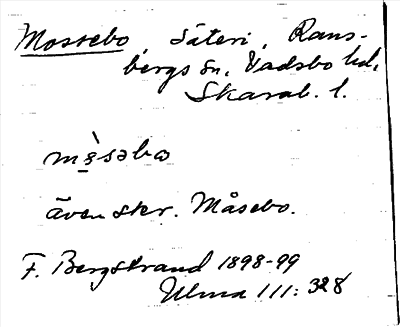 Mossebo, säteri, Rans-
bergs sn, Vadsbo hd,
Skarab. l.
även skr. Måsebo.
F. Bergstrand 1898-99
Ulma 111: 328